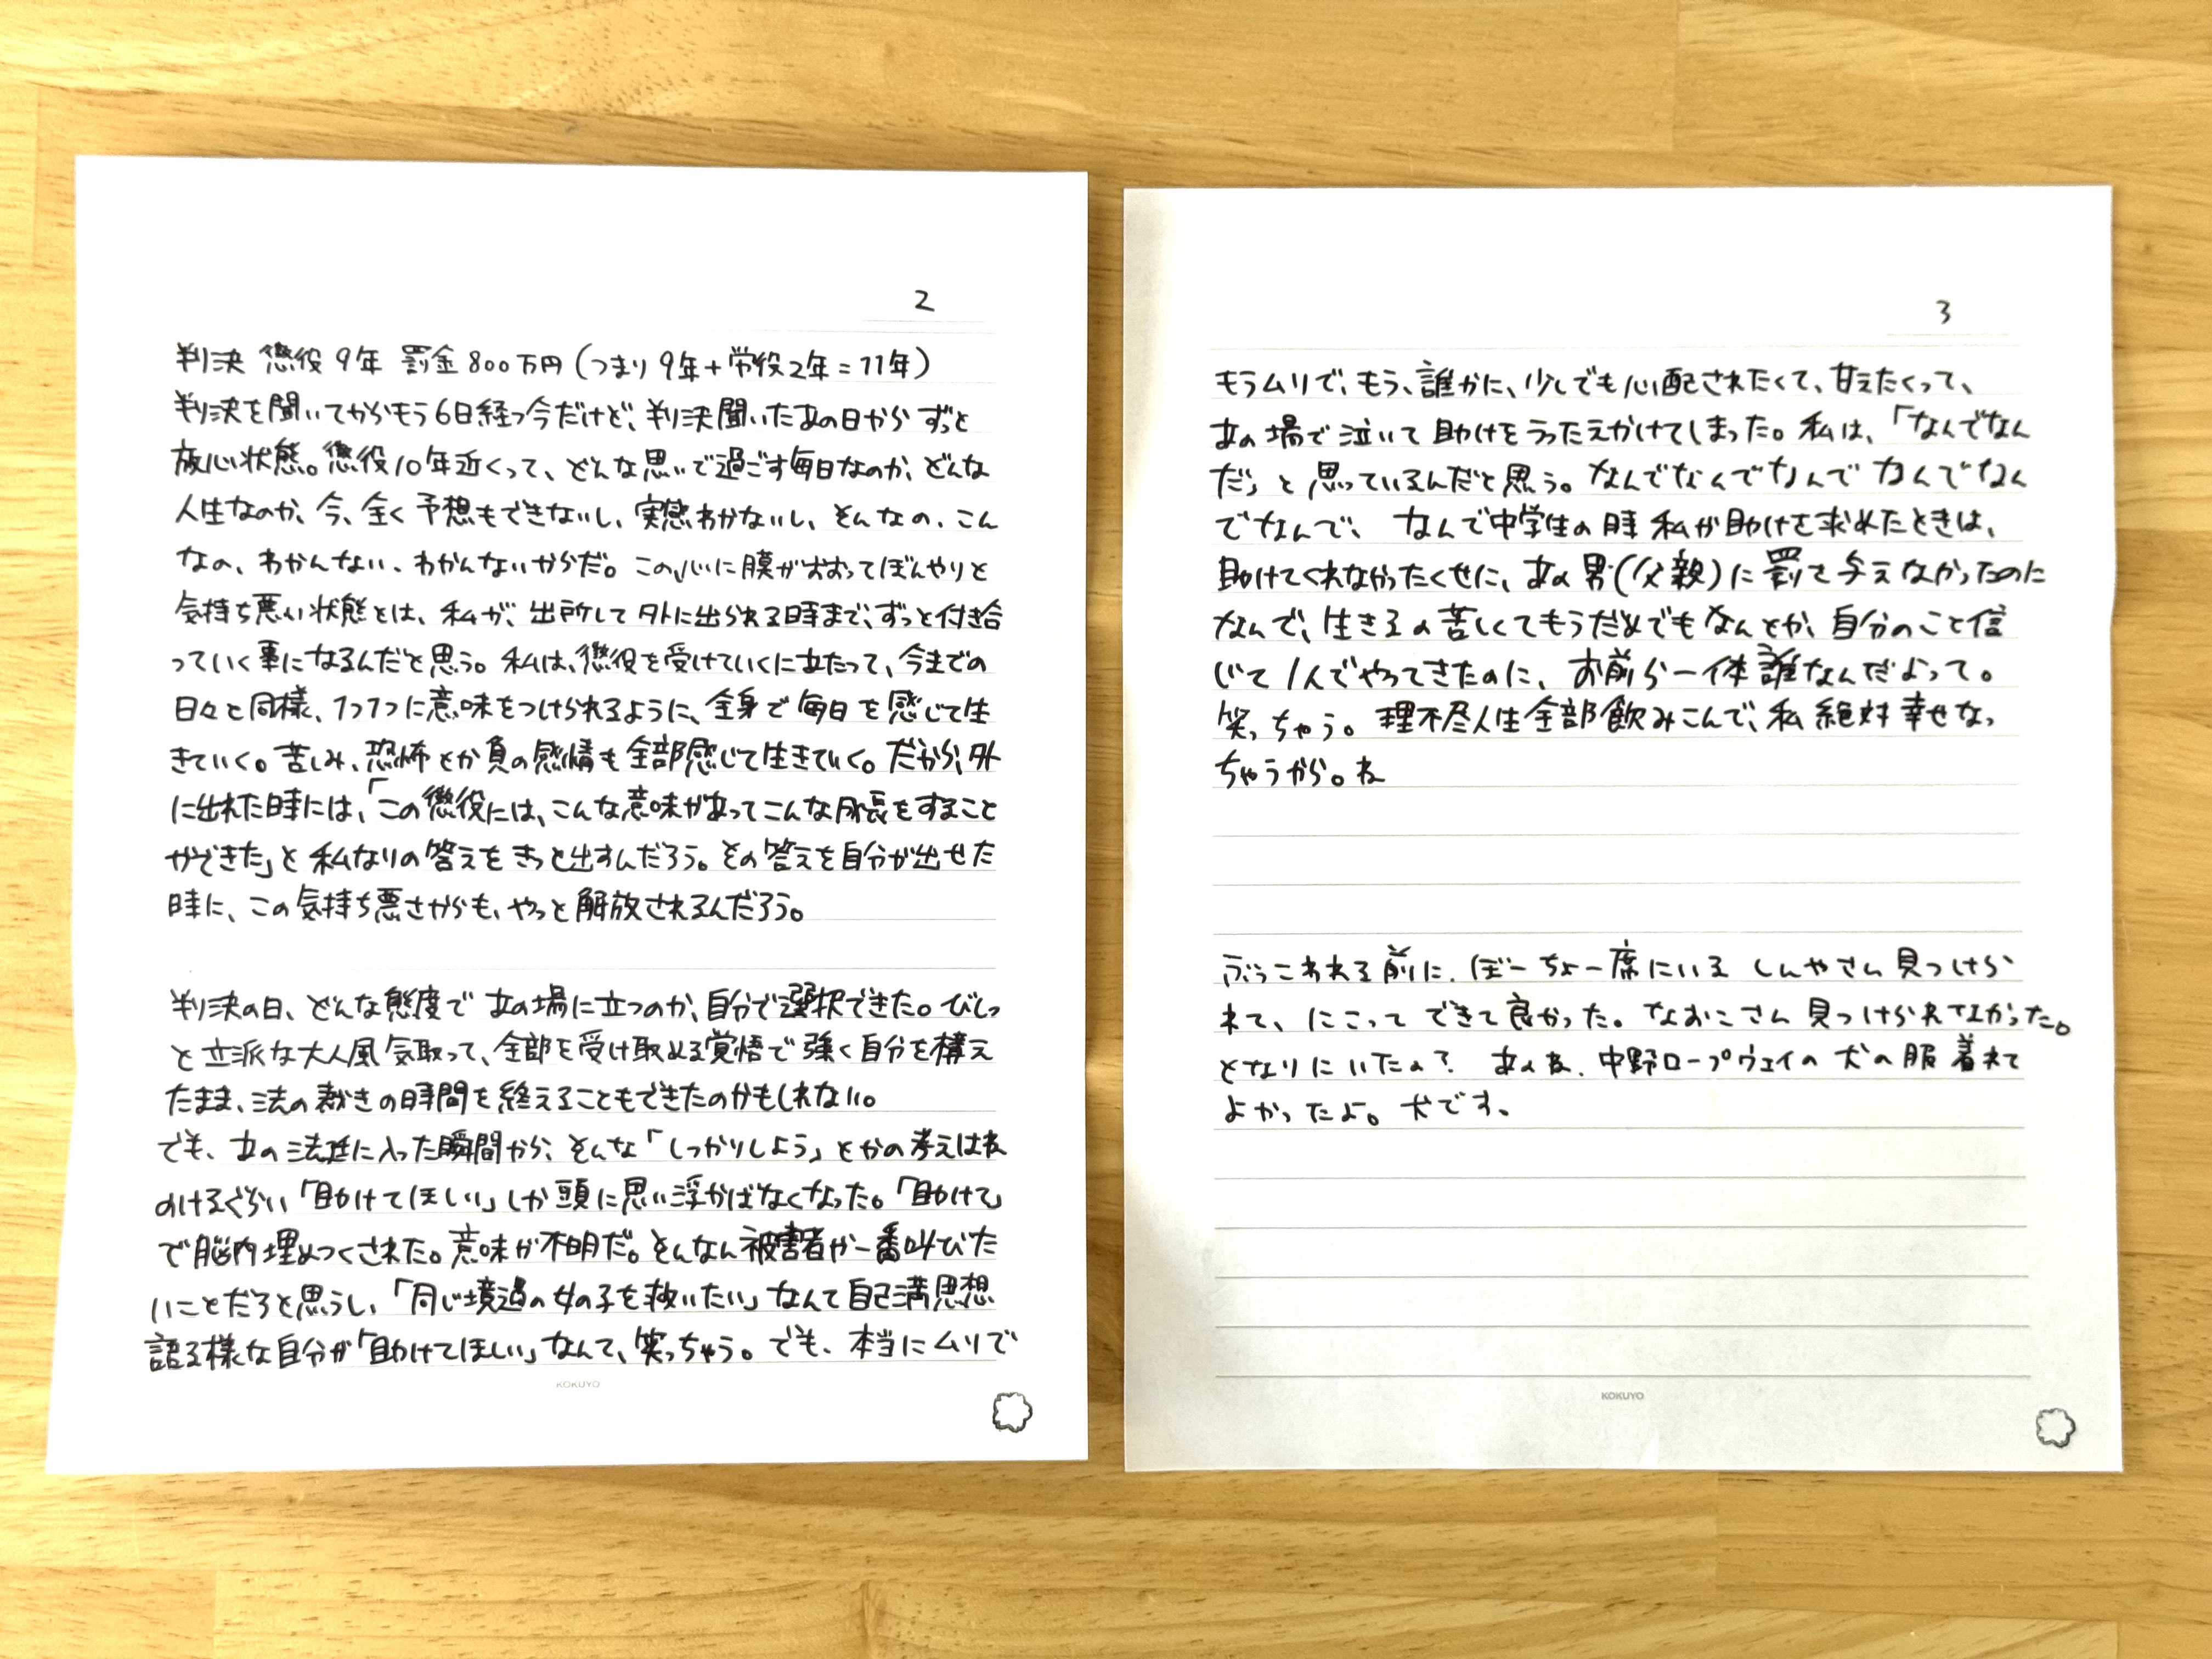 2
判決 懲役9年 罰金800万円(つまり9年+労役2年=11年)
判決を聞いてからもう6日経つ今だけど、判決聞いたあの日からずっと
放心状態。懲役10年近くって、どんな思いで過ごす毎日なのか、どんな
人生なのか、今、全く予想もできないし、実感わかないし、そんなの、こん
なの、わかんない、わかんないからだ。この心に膜がおおってぼんやりと
気持ち悪い状態とは、私が、出所して外に出られる時まで、ずっと付き合
っていく事になるんだと思う。私は、懲役を受けていくにあたって、今までの
日々と同様、1つ1つに意味をつけられるように、全身で毎日を感じて生
きていく。苦しみ、恐怖とか負の感情も全部感じて生きていく。だから、外
に出れた時には、「この懲役には、こんな意味があってこんな成長をすること
ができた」と私なりの答えをきっと出すんだろう。その答えを自分が出せた
時に、この気持ち悪さからも、やっと解放されるんだろう。
判決の日、どんな態度であの場に立つのか、自分で選択できた。びしっ
と立派な大人風気取って、全部を受け取める覚悟で強く自分を構え
たまま、法の裁きの時間を終えることもできたのかもしれない。
でも、あの法廷に入った瞬間から、そんな「しっかりしよう」とかの考えはね
のけるぐらい「助けてほしい」しか頭に思い浮かばなくなった。「助けて」
で脳内埋めつくされた。意味が不明だ。そんなん被害者が一番叫びた
いことだろと思うし、「同じ境遇の女の子を救いたい」なんて自己満思想
語る様な自分が「助けてほしい」なんて、笑っちゃう。でも、本当にムリで
KOKUYO
3
もうムリで、もう、誰かに、少しでも心配されたくて、甘えたくって、
あの場で泣いて助けをうったえかけてしまった。私は、「なんでなん
だ」と思っているんだと思う。なんでなんでなんでなんでなん
でなんで、なんで中学生の時私が助けを求めたときは、
助けてくれなかったくせに、あの男(父親)に罰さ与えなかったのに
なんで、生きるの苦しくてもうだめでもなんとか、自分のこと信
じて1人でやってきたのに、お前ら一体誰なんだよって。
笑っちゃう。理不尽人生全部飲みこんで、私絶対幸せなっ
ちゃうから。ね
ぶっこわれる前に、ぼーちょー席にいるしんやさん見つけら
れて、にこってできて良かった。なおこさん見つけられなかった。
となりにいたの？ あのね、中野ロープウェイの犬の服着れて
よかったよ。犬です。
KOKUYO